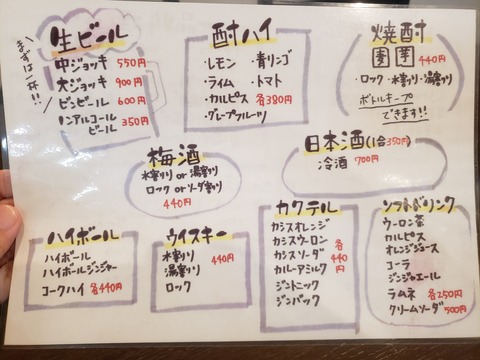 まずは一杯!!
生ビール
中ジョッキ 550円
大ジョッキ 900円
ビンビール 600円
ノンアルコール
ビール 350円
酎ハイ
・レモン ・青リンゴ
・ライム ・トマト
・カルピス 各380円
・グレープフルーツ
焼酎
麦 芋 440円
・ロック・水割り・湯割り
ボトルキープ
できます!!
梅酒
水割り or 湯割り
ロック or ソーダ割り
440円
日本酒(1合350円)
冷酒 700円
ハイボール
ハイボール
ハイボールジンジャー
コークハイ 各440円
ウイスキー
水割り 440円
湯割り
ロック
カクテル
カシスオレンジ
カシスウーロン 各
カシスソーダ 440
カルーアミルク 円
ジントニック
ジンバック
ソフトドリンク
ウーロン茶
カルピス
オレンジジュース
コーラ
ジンジャエール
ラムネ 各250円
クリームソーダ 500円